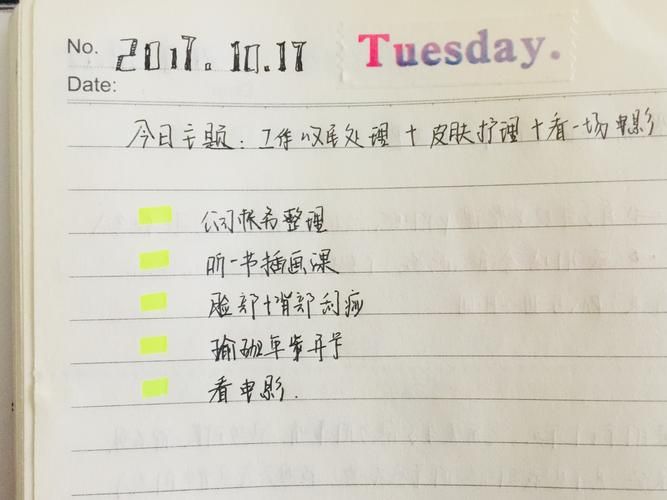 No. 2017.10.17 Tuesday.
Date:
今日主题：工作收尾处理+皮肤护理+看一场电影
公司帐务整理
听一书插画课
脸部+背部刮痧
瑜珈年费开卡
看电影.